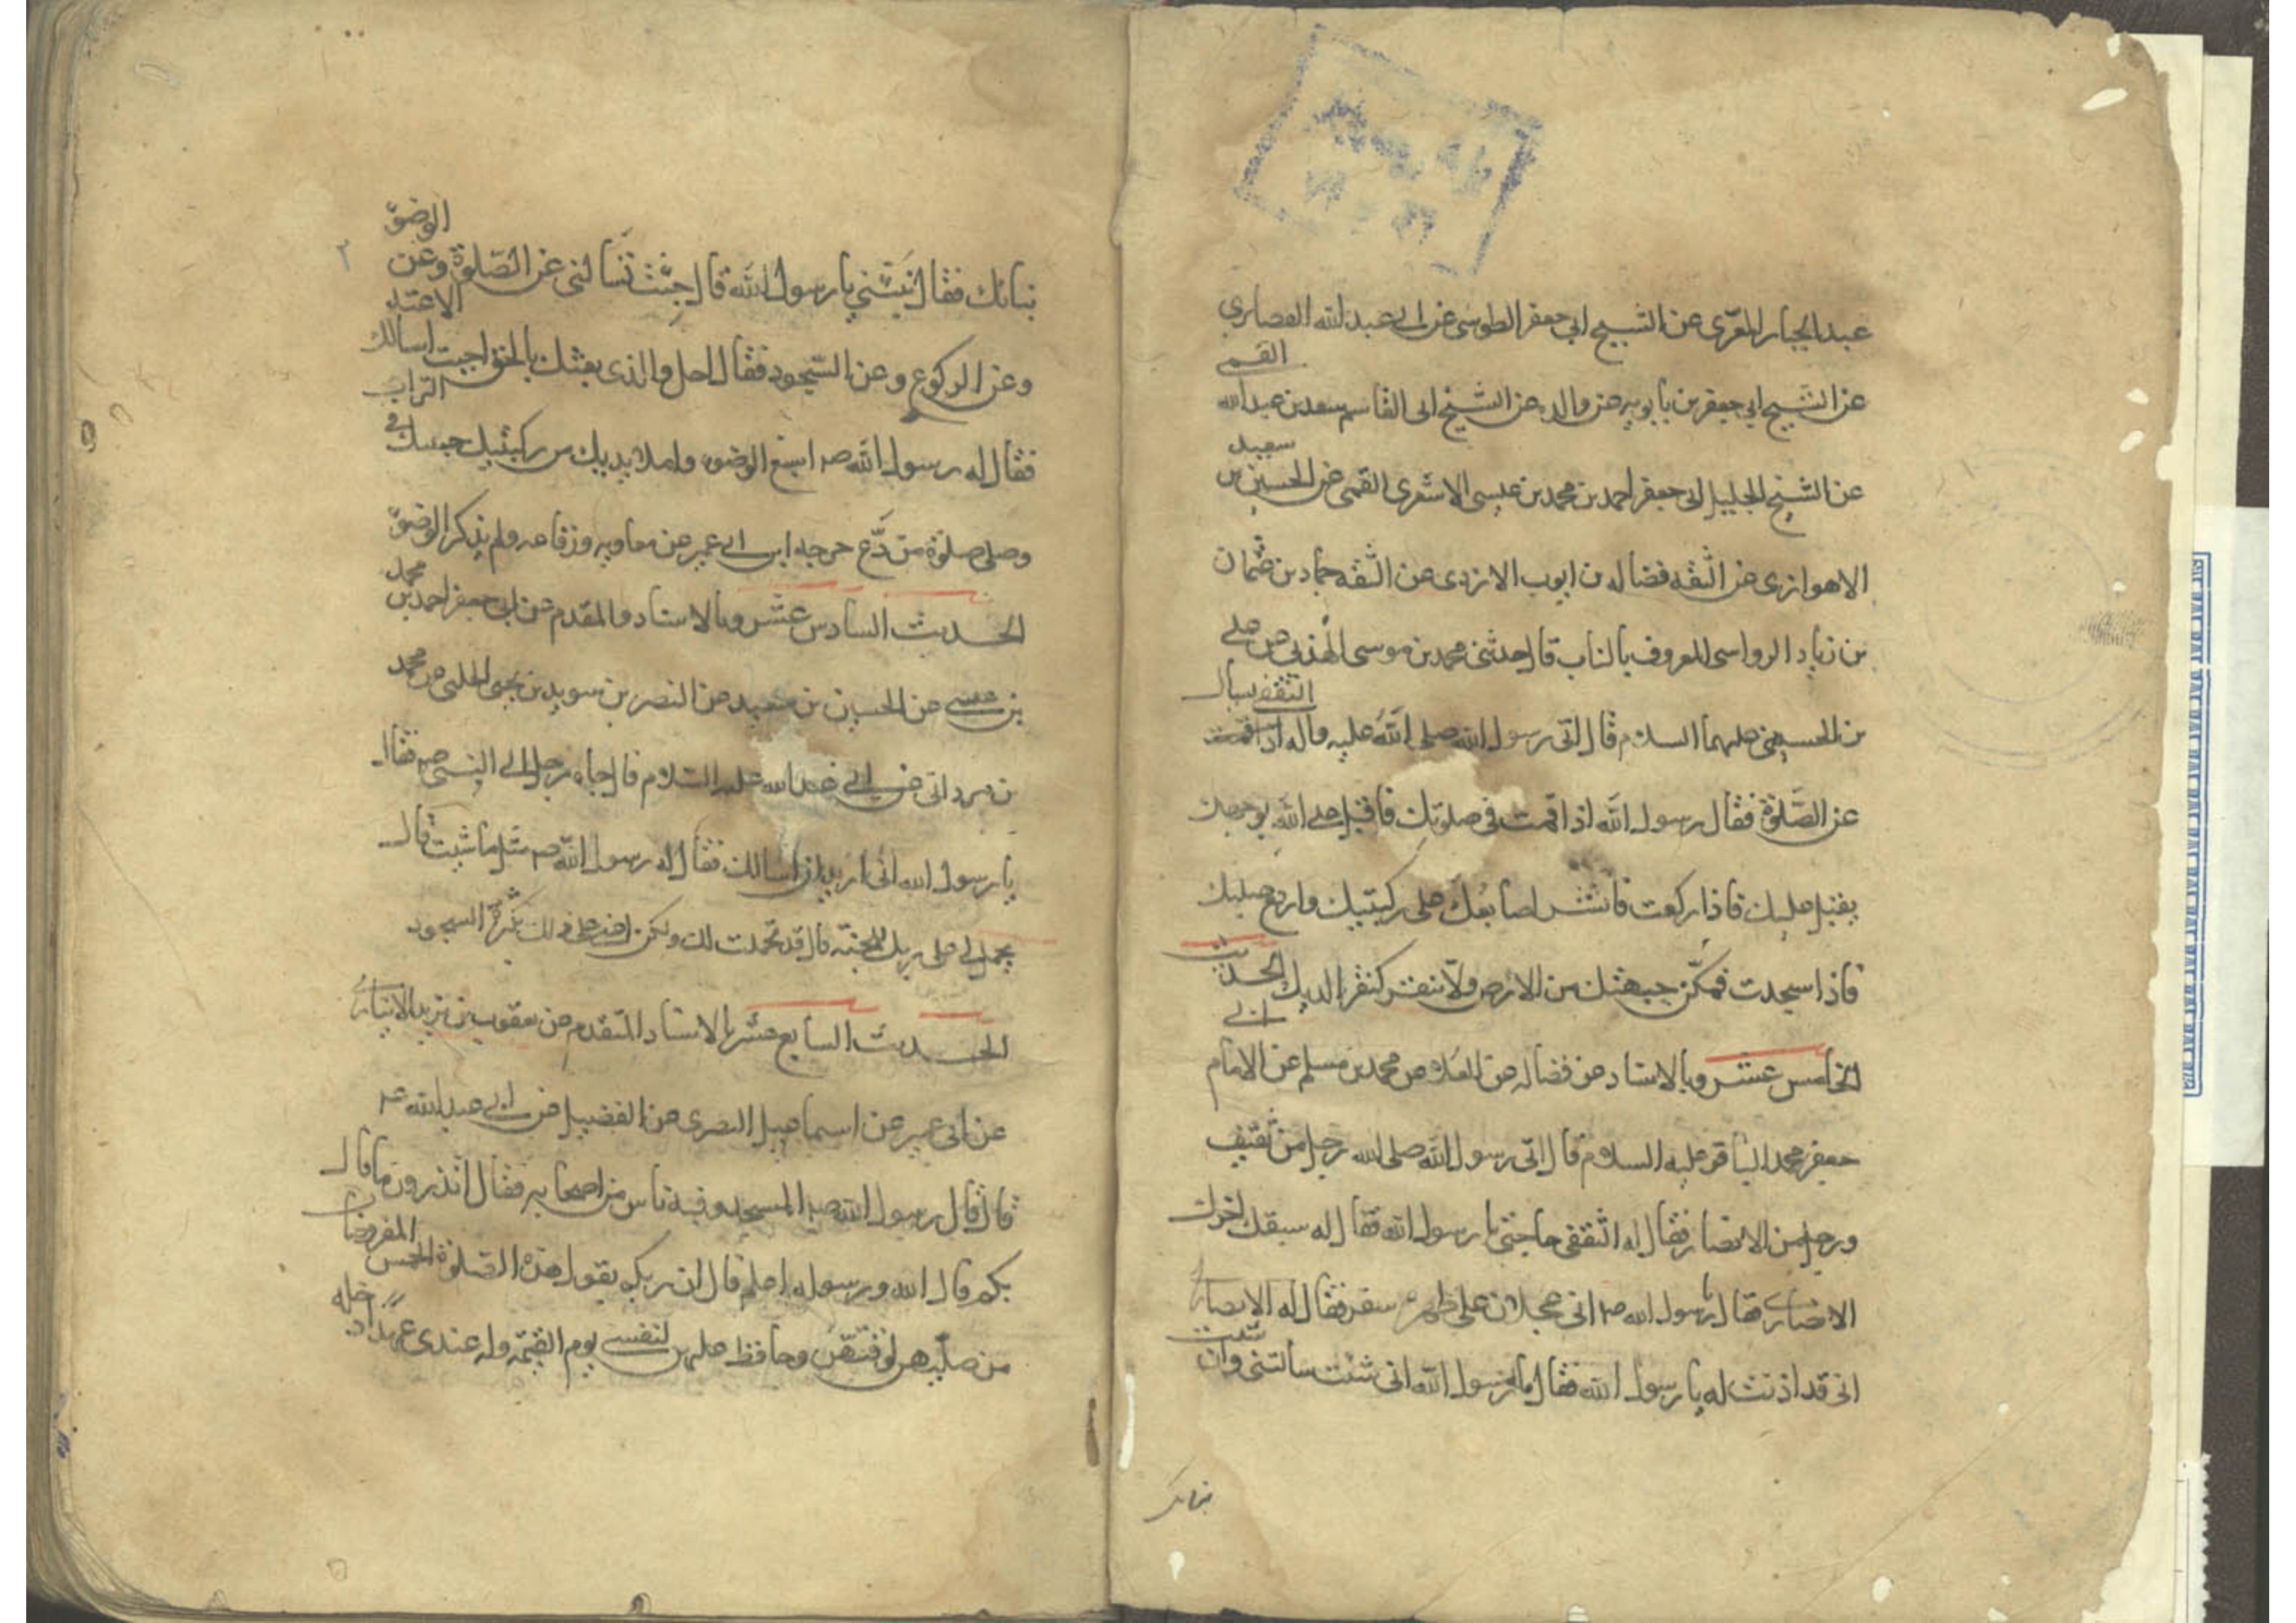 عبد الجبار المقرى عن الشيخ ابى جعفر الطوسى عن ابى عبد الله الغضايرى
عن الشيخ ابى جعفر بن بابويه عن والده عن الشيخ ابى القاسم سعد بن عبد الله القمى
عن الشيخ الجليل ابى جعفر احمد بن محمد بن عيسى الاشعرى القمى عن الحسين بن سعيد
الاهوازى عن الثقه فضاله بن ايوب الازدى عن الثقه حماد بن عثمان
بن زياد الرواسى المعروف بالناب قال حدثنى محمد بن موسى الهذلى عن على
بن الحسين عليهما السلام قال اتى رسول الله صلى الله عليه واله الثقفى يسال
عن الصلوة فقال رسول الله اذا قمت فى صلوتك فاقبل على الله بوجهك
يقبل عليك فاذا ركعت فانشر اصابعك على ركبتيك وارفع صلبك
فاذا سجدت فمكن جبهتك من الارض ولا تنقر كنقر الديك الحديث
الخامس عشر وبالاسناد عن فضاله عن العلا عن محمد بن مسلم عن الامام ابى
جعفر محمد الباقر عليه السلام قال اتى رسول الله صلى الله رجل من ثقيف
ورجل من الانصار فقال له الثقفى حاجتى يا رسول الله فقال له سبقك اخوك
الانصارى فقال يا رسول الله ص انى عجلان على ظهر سفر فقال له الانصارى
انى قد اذنت له يا رسول الله فقال له رسول الله ان شئت سالتنى وان شئت
نباتك
٢
نباتك فقال نبئنى يا رسول الله قال جئت تسالنى عن الصلوة وعن الوضوء
وعن الركوع وعن السجود فقال اجل والذى بعثك بالحق اجبت اسالك
فقال له رسول الله ص اسبغ الوضوء واملا يديك من ركبتيك جبينك فى التراب
وصل صلوة مودع خرجه ابن ابى عمير عن معاويه ورفاعه ولم يذكر الوضوء
الحديث السادس عشر وبالاسناد والمقدم عن ابى جعفر احمد بن محمد
بن عيسى عن الحسين بن سعيد عن النضر بن سويد بن يحيى الحلبى عن محمد
بن مرد انى عن ابى عبد الله عليه السلام قال جاء رجل الى النبى ص فقال
يا رسول الله انى اريد ان اسالك فقال له رسول الله ص سل ما شئت قال
تحمل لى على ربك الجنة قال قد تحملت لك ولكن اعنى على ذلك بكثرة السجود
الحديث السابع عشر بالاسناد المتقدم عن يعقوب بن يزيد الانبارى
عن ابى عمير عن اسماعيل البصرى عن الفضيل عن ابى عبد الله ع
قال قال رسول الله ص المسجد وفيه ناس من اصحابه فقال اتدرون ما قال
بكم قال الله ورسوله اعلم قال ان ربكم يقول هذه الصلوة الخمس المفروضات
من صليهن لوقتهن وحافظ عليهن لنفسى يوم القيمة وله عندى عهد ادخله